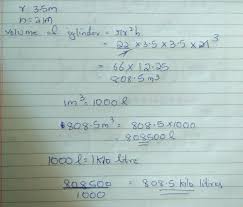 r 3.5m
h = 21m
volume of cylinder = πr²h
= 22/7 × 3.5 × 3.5 × 21 3
= 66 × 12.25
= 808.5 m³
1m³ = 1000 l
808.5m³ = 808.5 × 1000
= 808500 l
1000 l = 1 kilo litre
808500/1000 = 808.5 kilo litres